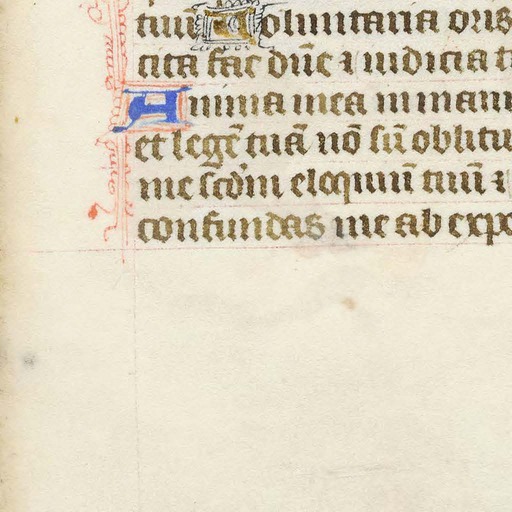 tuū Voluntaria oris
cita fac dn̄e ⁊ iudicia t
Anima mea in mani
et legē tuā nō sū oblitu
me scdm̄ eloquiū tuū ⁊
confundas me ab exp